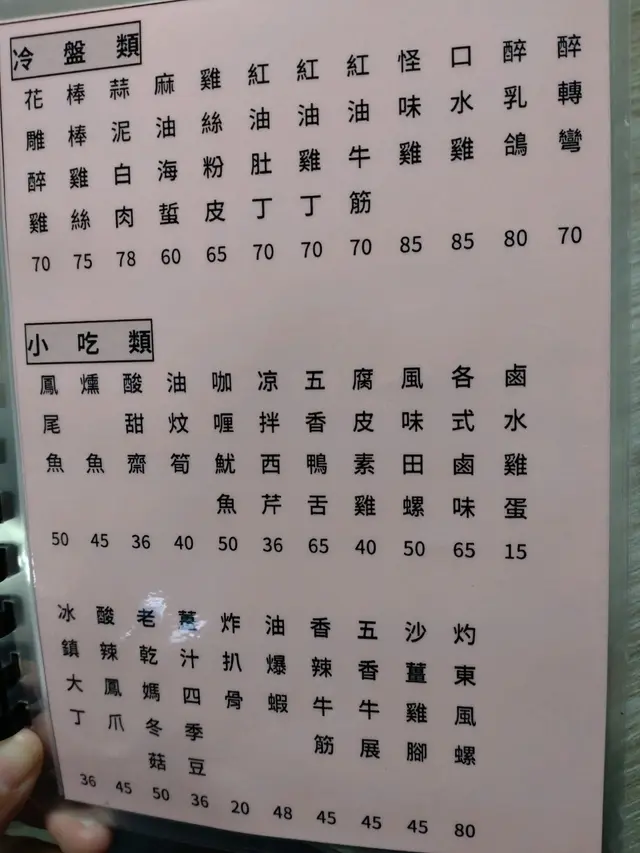 冷盤類
花雕醉雞 70
棒棒雞絲 75
蒜泥白肉 78
麻油海蜇 60
雞絲粉皮 65
紅油肚丁 70
紅油雞丁 70
紅油牛筋 70
怪味雞 85
口水雞 85
醉乳鴿 80
醉轉彎 70
小吃類
鳳尾魚 50
燻魚 45
酸甜齋 36
油炆筍 40
咖喱魷魚 50
凉拌西芹 36
五香鴨舌 65
腐皮素雞 40
風味田螺 50
各式鹵味 65
鹵水雞蛋 15
冰鎮大丁 36
酸辣鳳爪 45
老乾媽冬菇 50
薑汁四季豆 36
炸扒骨 20
油爆蝦 48
香辣牛筋 45
五香牛展 45
沙薑雞腳 45
灼東風螺 80